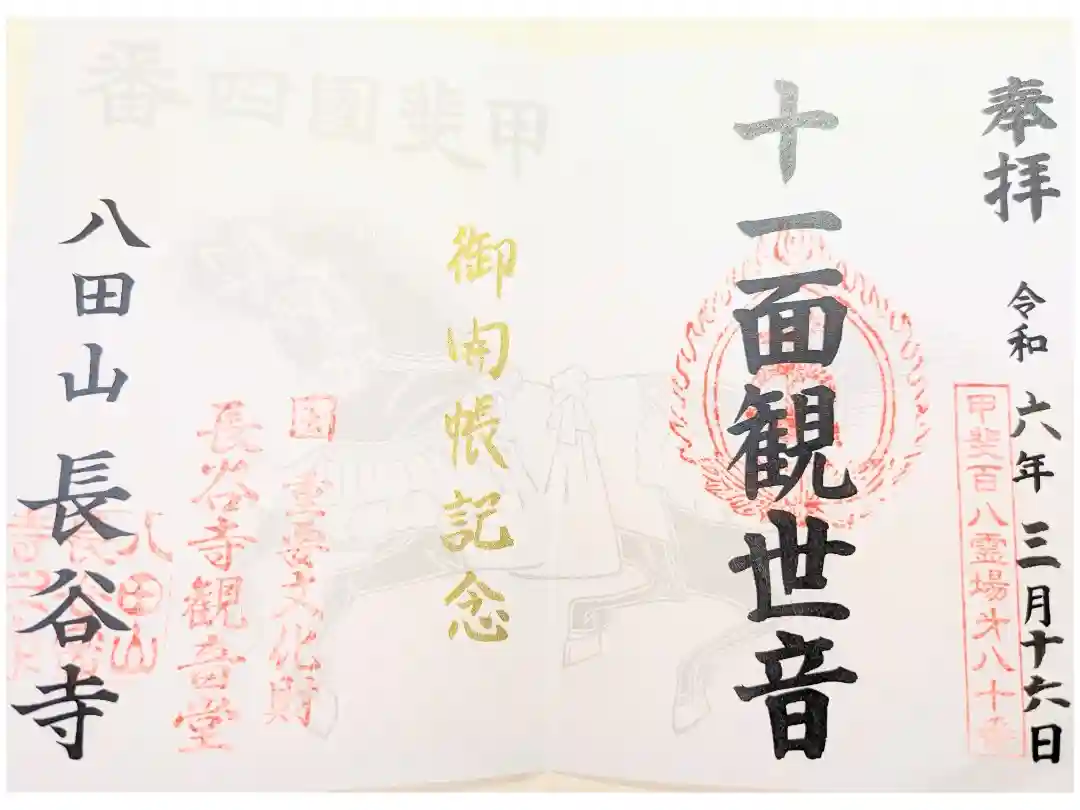 奉拝 令和六年三月十六日
甲斐百八霊場第八十番
十一面観世音
御開帳記念
甲斐国四番
国重要文化財
長谷寺観音堂
八田山 長谷寺
八田山